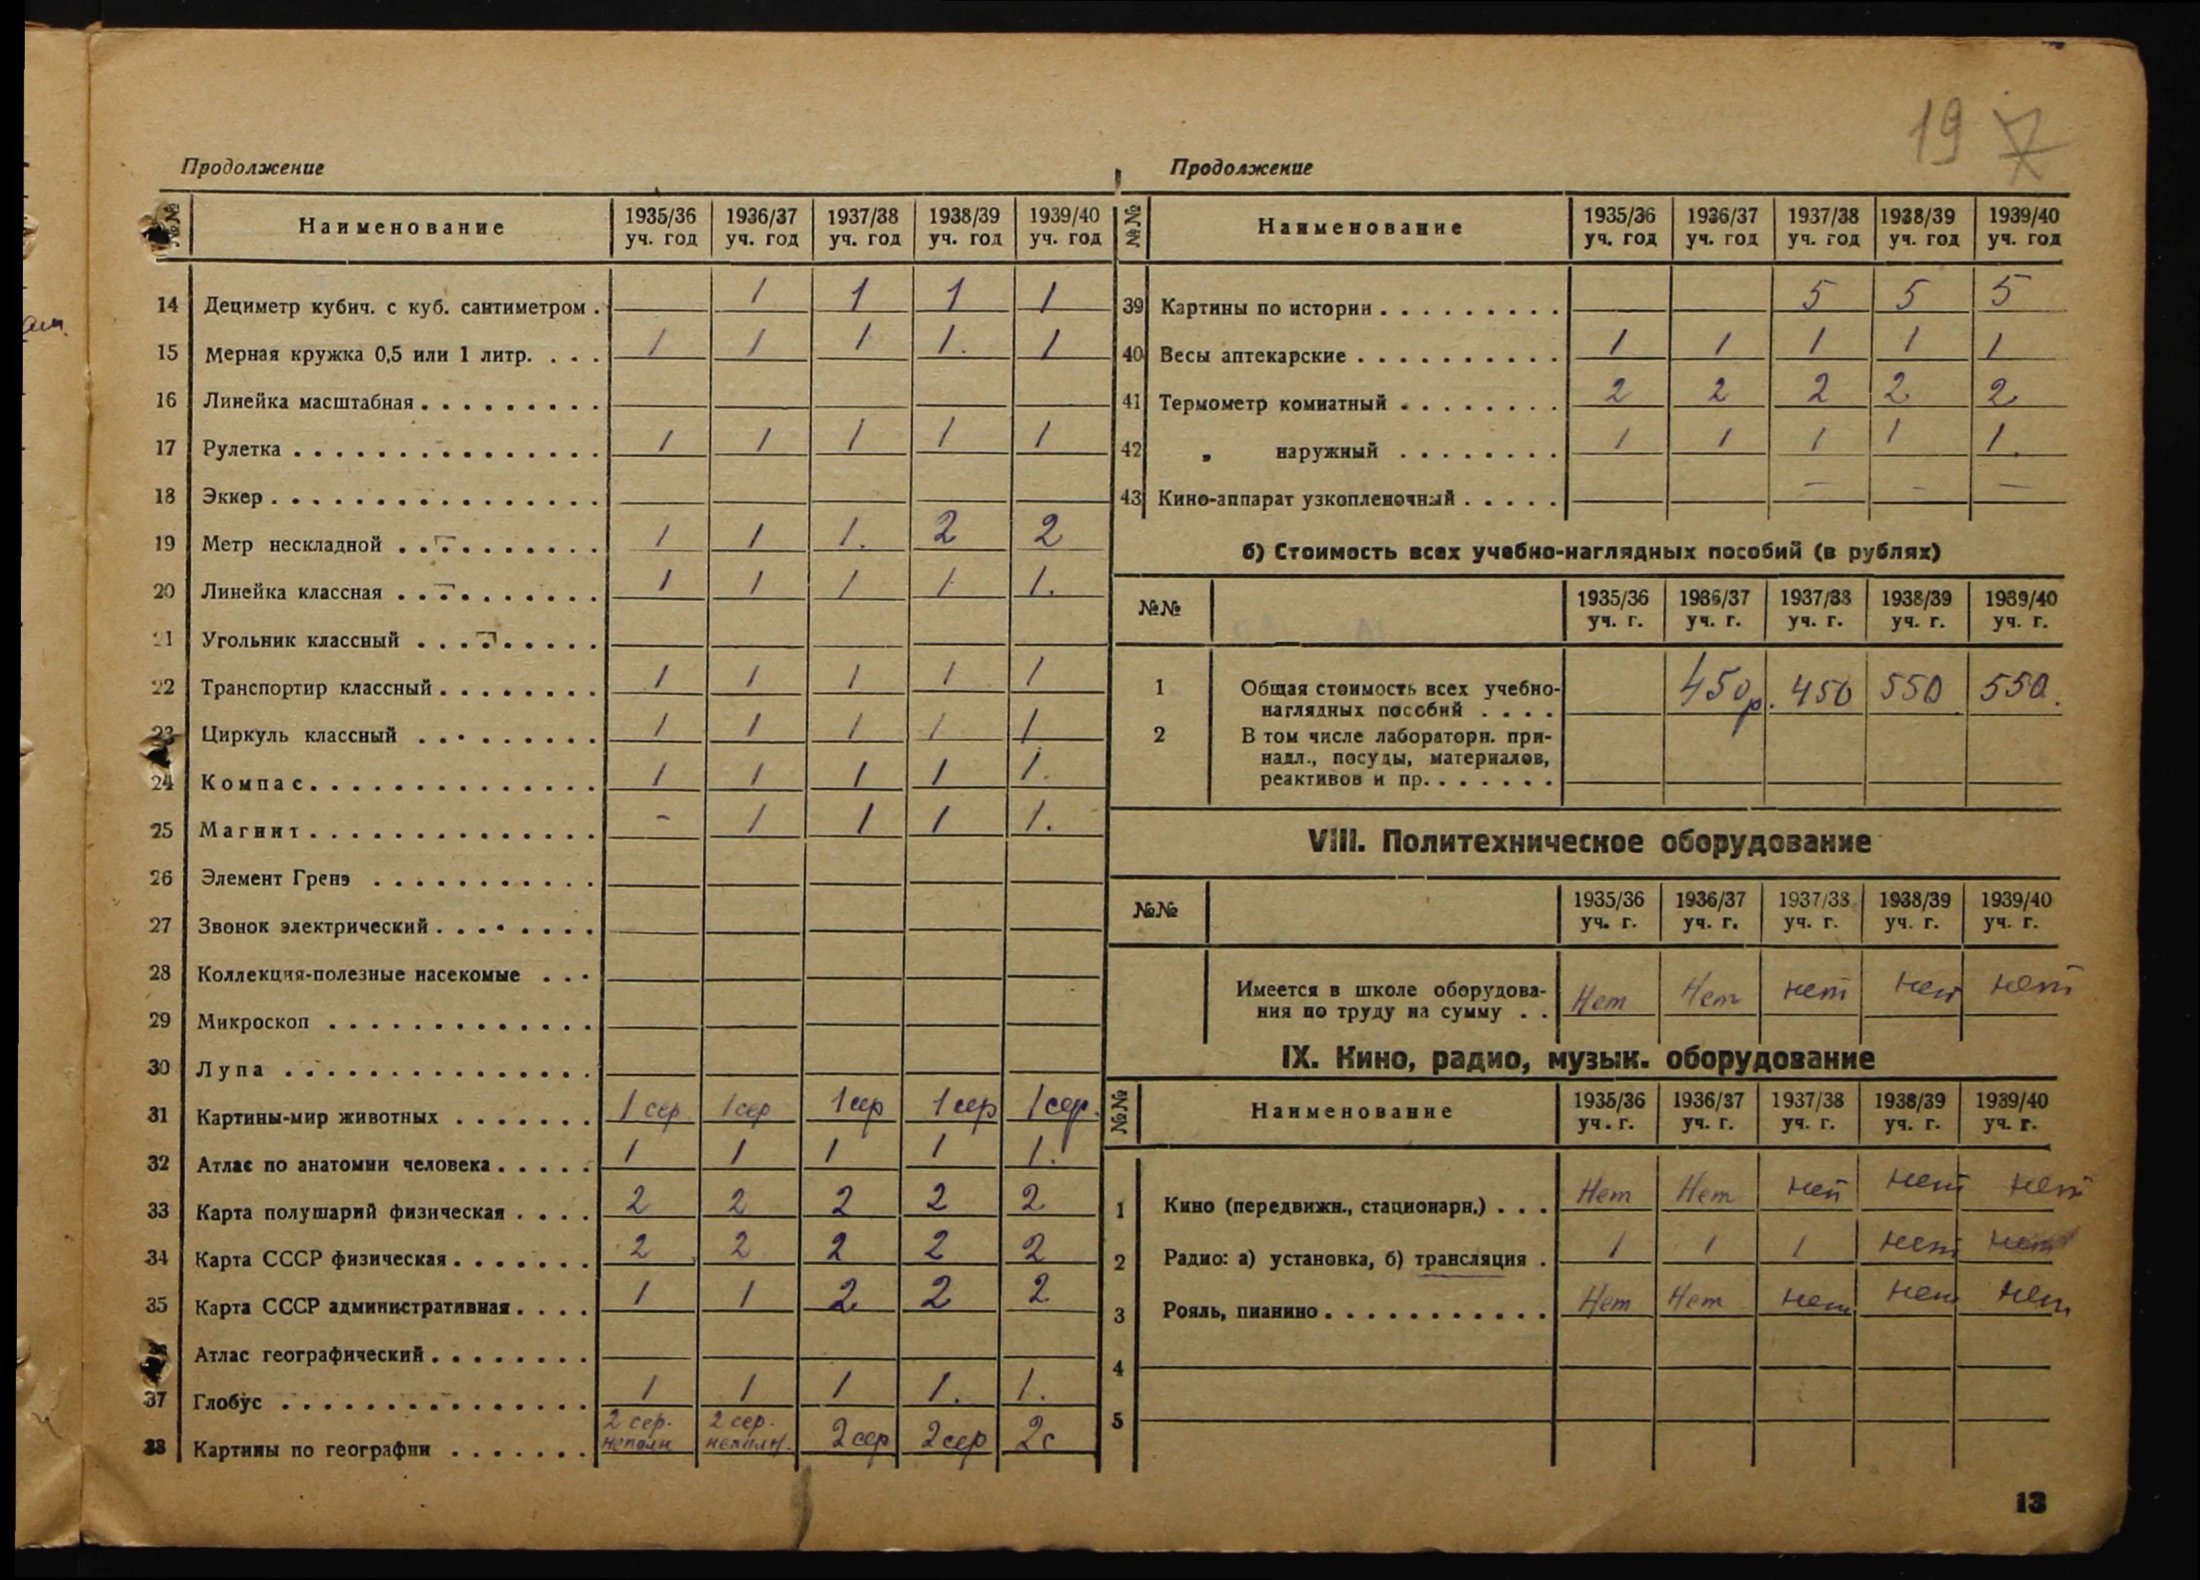 19 7
Продолжение
№№ Наименование 1935/36 уч. год 1936/37 уч. год 1937/38 уч. год 1938/39 уч. год 1939/40 уч. год
14 Дециметр кубич. с куб. сантиметром . 1 1 1 1
15 Мерная кружка 0,5 или 1 литр. . . . 1 1 1 1. 1
16 Линейка масштабная . . . . . . . . .
17 Рулетка . . . . . . . . . . . . . . . 1 1 1 1 1
18 Эккер . . . . . . . . . . . . . . . .
19 Метр нескладной . . . . . . . . . . 1 1 1. 2 2
20 Линейка классная . . . . . . . . . . 1 1 1 1 1.
21 Угольник классный . . . . . . . . .
22 Транспортир классный . . . . . . . . 1 1 1 1 1
23 Циркуль классный . . . . . . . . . 1 1 1 1 1
24 Компас . . . . . . . . . . . . . . 1 1 1 1 1.
25 Магнит . . . . . . . . . . . . . . - 1 1 1 1.
26 Элемент Гренэ . . . . . . . . . . .
27 Звонок электрический . . . . . . . .
28 Коллекция-полезные насекомые . . .
29 Микроскоп . . . . . . . . . . . . .
30 Лупа . . . . . . . . . . . . . . .
31 Картины-мир животных . . . . . . . 1 сер. 1 сер 1 сер 1 сер 1 сер.
32 Атлас по анатомии человека . . . . . 1 1 1 1 1.
33 Карта полушарий физическая . . . . 2 2 2 2 2
34 Карта СССР физическая . . . . . . . 2 2 2 2 2
35 Карта СССР административная . . . . 1 1 2 2 2
Атлас географический . . . . . . . .
37 Глобус . . . . . . . . . . . . . . . 1 1 1 1. 1.
38 Картины по географии . . . . . . . 2 сер. неполн 2 сер. неполн. 2 сер 2 сер 2 с
Продолжение
№№ Наименование 1935/36 уч. год 1936/37 уч. год 1937/38 уч. год 1938/39 уч. год 1939/40 уч. год
39 Картины по истории . . . . . . . . . 5 5 5
40 Весы аптекарские . . . . . . . . . . 1 1 1 1 1
41 Термометр комнатный . . . . . . . . 2 2 2 2 2
42 „ наружный . . . . . . . . 1 1 1 1 1.
43 Кино-аппарат узкопленочный . . . . . - - -
б) Стоимость всех учебно-наглядных пособий (в рублях)
№№ 1935/36 уч. г. 1936/37 уч. г. 1937/38 уч. г. 1938/39 уч. г. 1939/40 уч. г.
1 Общая стоимость всех учебно-
наглядных пособий . . . . 450р. 450 550 550.
2 В том числе лабораторн. при-
надл., посуды, материалов,
реактивов и пр. . . . . . .
VIII. Политехническое оборудование
№№ 1935/36 уч. г. 1936/37 уч. г. 1937/38 уч. г. 1938/39 уч. г. 1939/40 уч. г.
Имеется в школе оборудова-
ния по труду на сумму . . Нет Нет нет нет нет
IX. Кино, радио, музык. оборудование
№№ Наименование 1935/36 уч. г. 1936/37 уч. г. 1937/38 уч. г. 1938/39 уч. г. 1939/40 уч. г.
1 Кино (передвижн., стационарн.) . . . Нет Нет нет нет нет
2 Радио: а) установка, б) трансляция . 1 1 1 нет нет
3 Рояль, пианино . . . . . . . . . . . Нет Нет нет нет нет
4
5
13